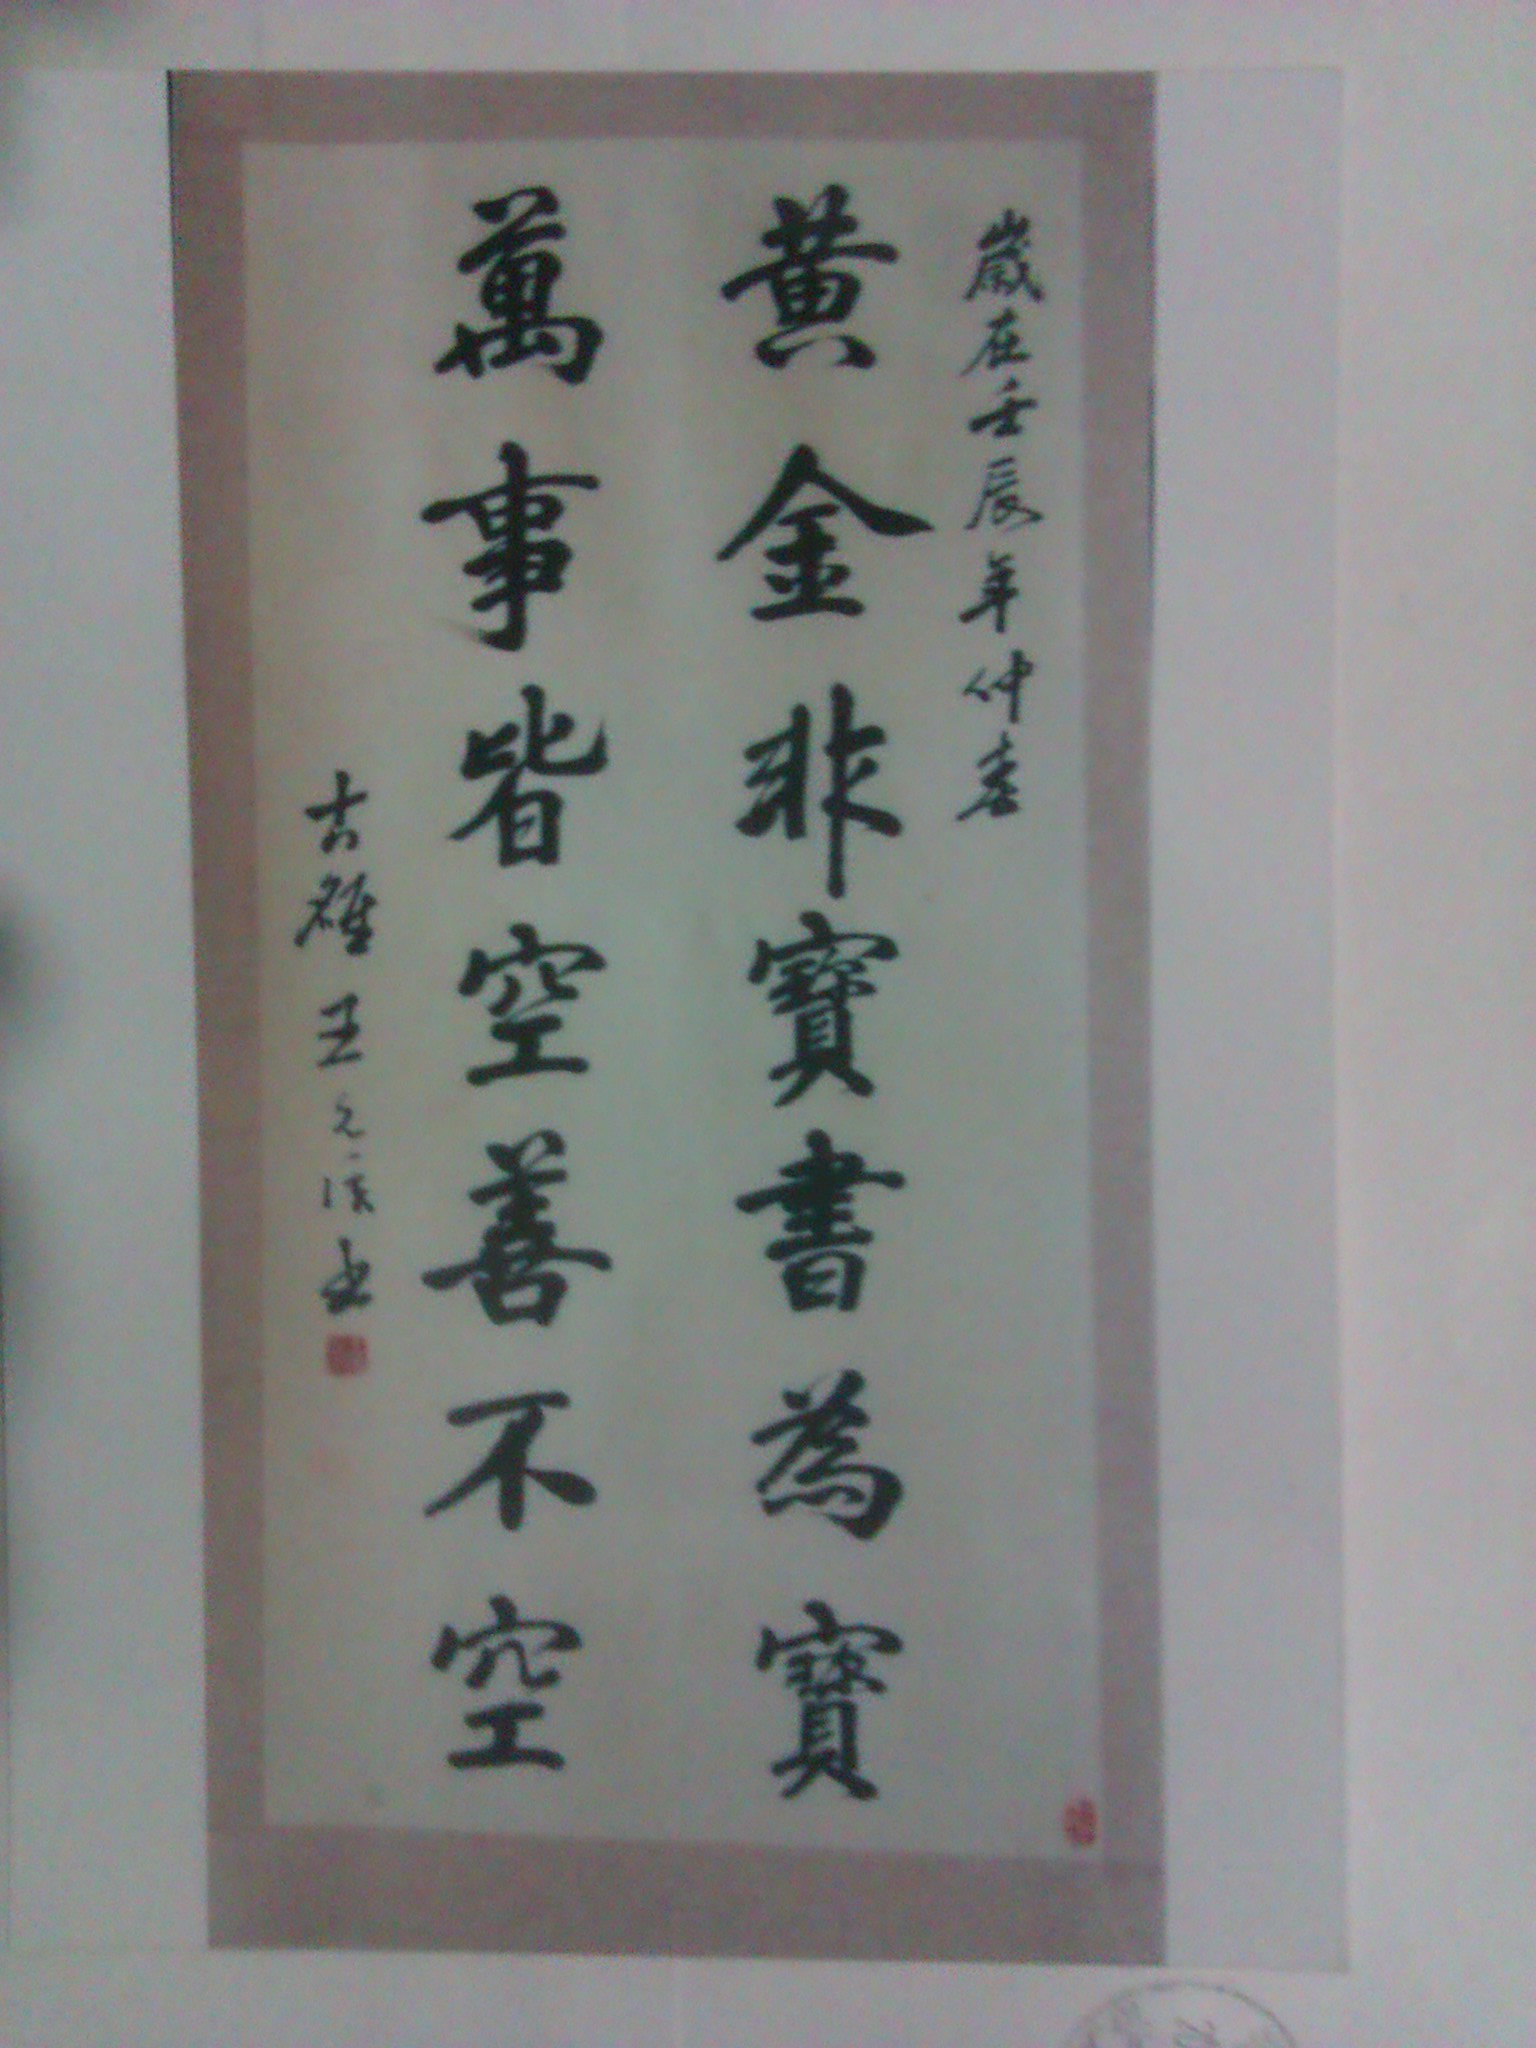 歲在壬辰年仲春
黃金非寶書為寶
萬事皆空善不空
古雒王